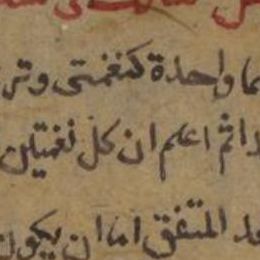 ما واحدة كنغمتى وتر
اثم اعلم ان كل نغمتين
المتفق اما ان يكون